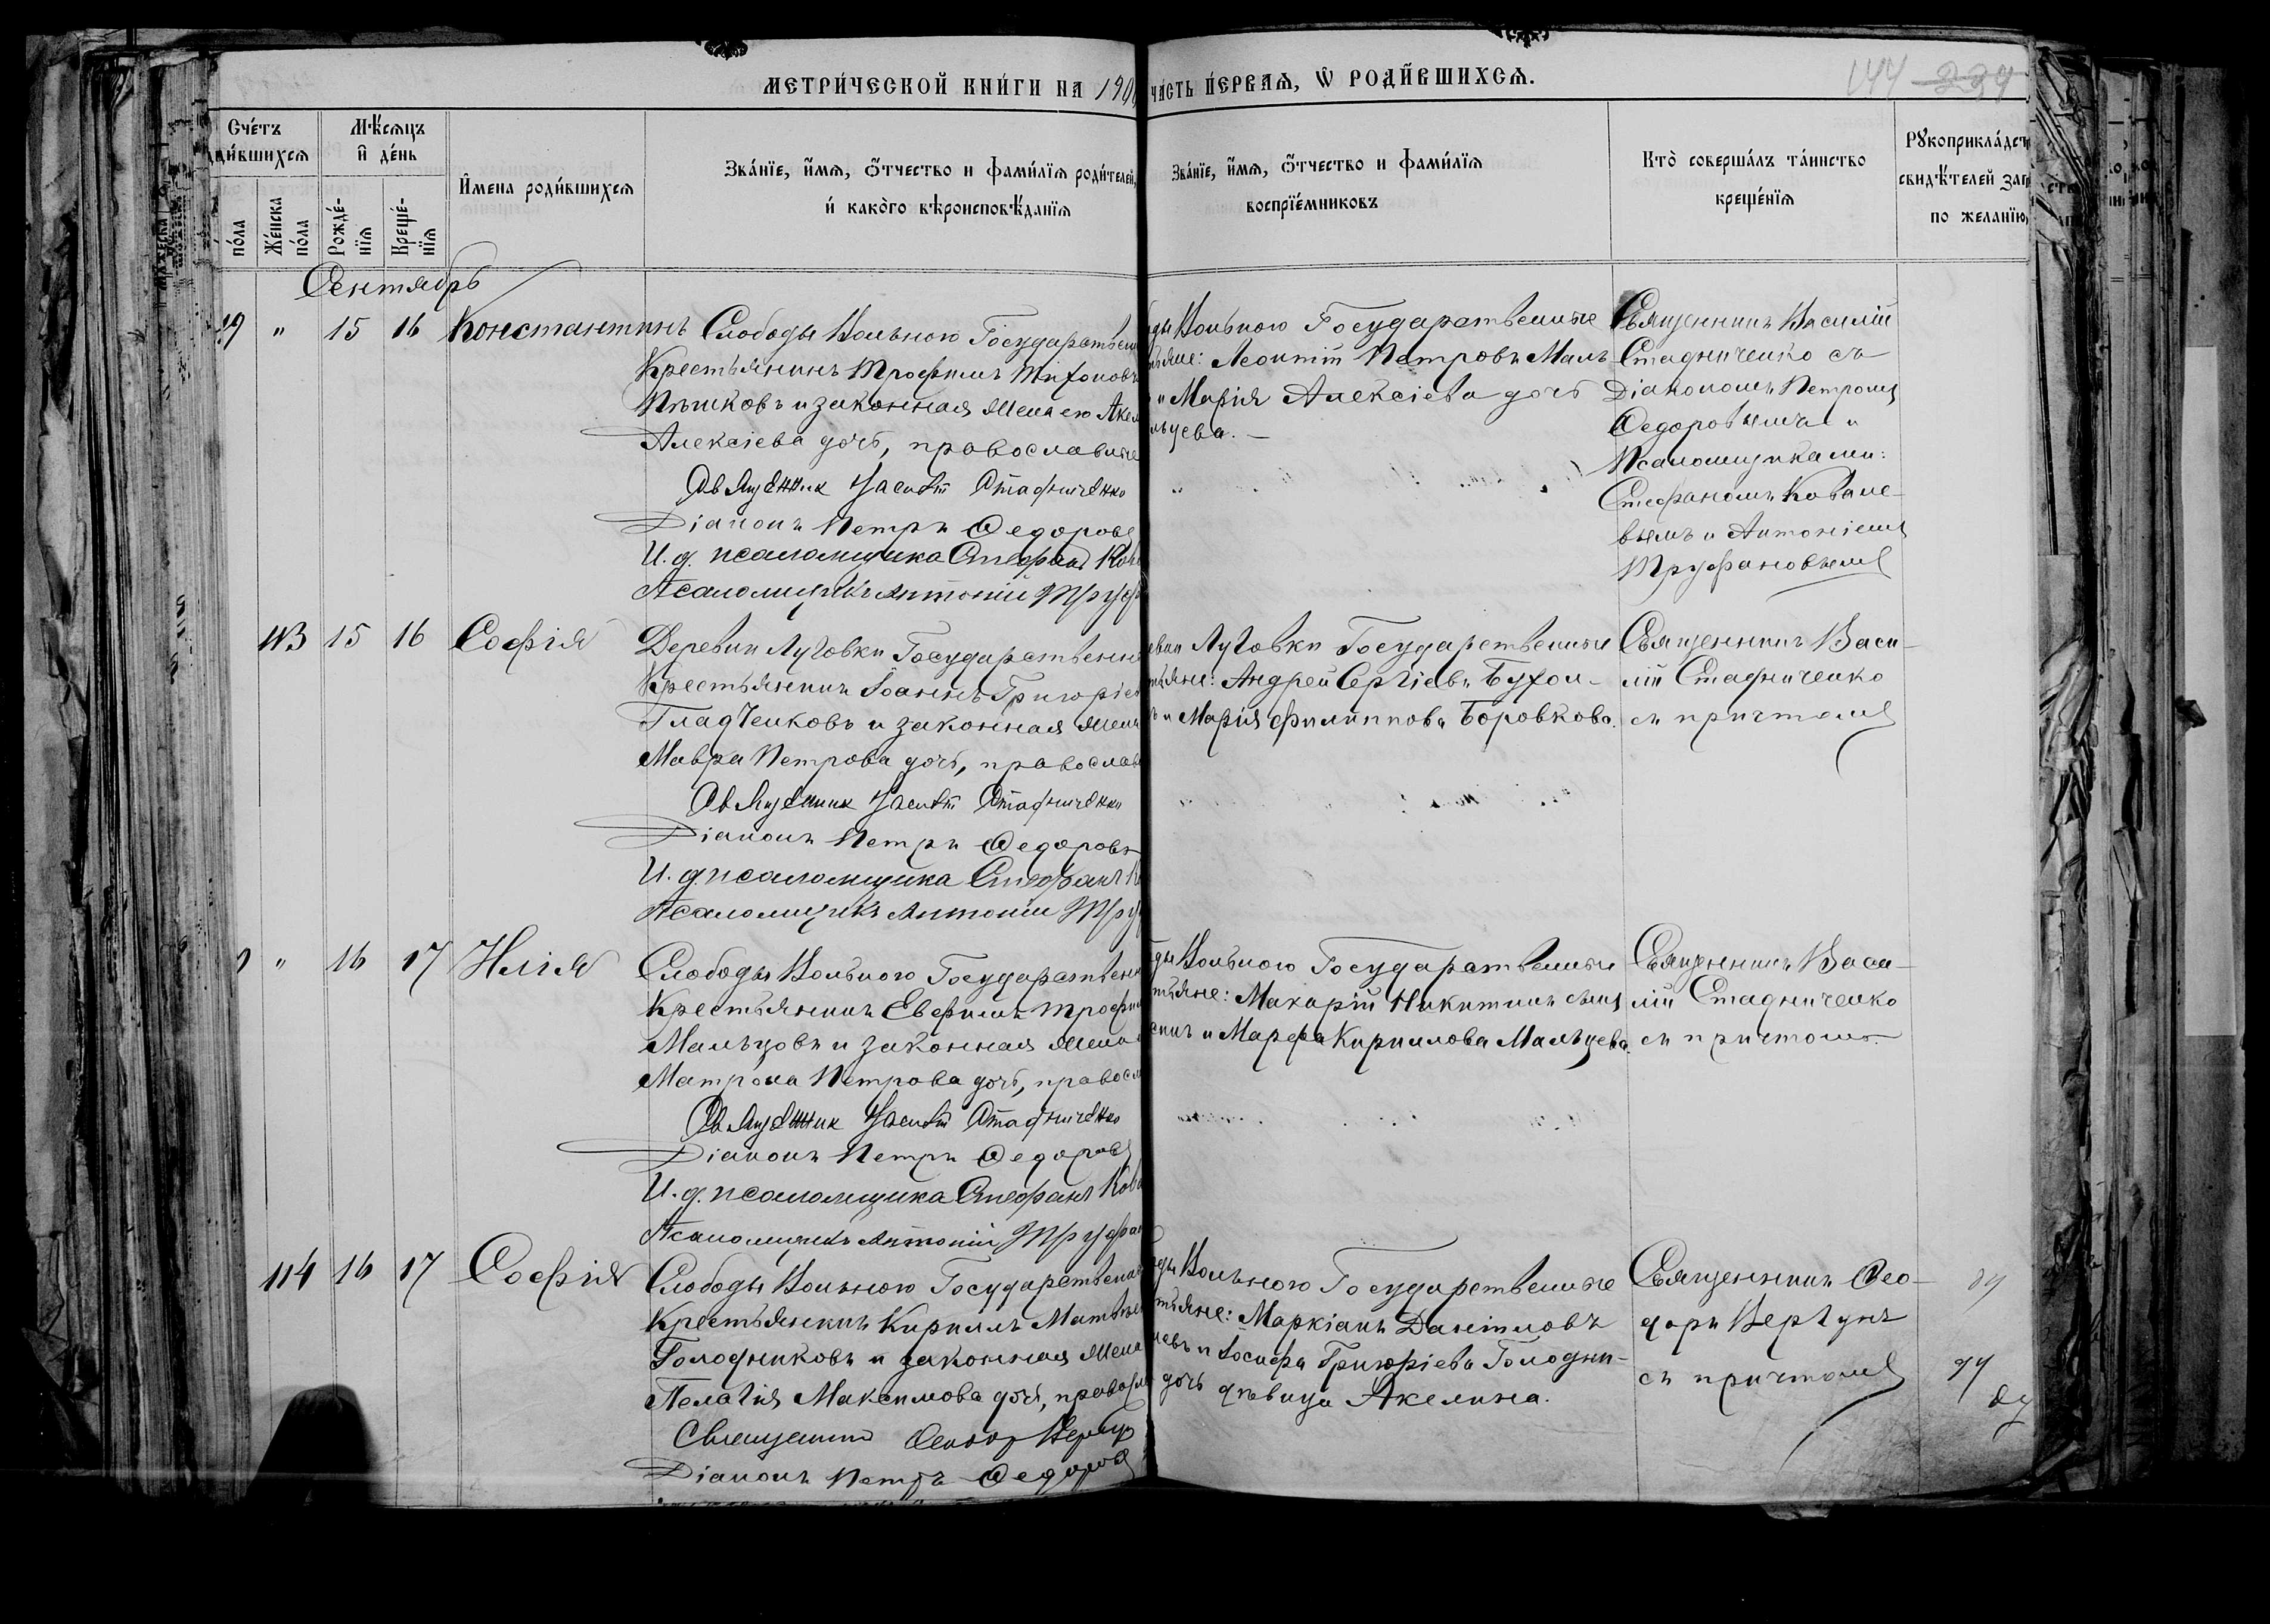 МЕТРИ́ЧЕСКОЙ КНИ́ГИ НА 190
ЧА́СТЬ ПЕ́РВАѦ, Ѿ РОДИ́ВШИХСѦ.
144 239
Сче́тъ
ди́вшихсѧ
Мѣ́сѧцъ
и де́нь
И҆мена роди́вшихсѧ
Зва́нїе, и҆́мѧ, ѻ҆́тчество и фами́лїѧ роди́телей,
и҆ како́го вѣроисповѣ́данїѧ
по́ла
Же́нска
по́ла
Рожде́-
нїѧ
Креще́-
нїѧ
Зва́нїе, и҆́мѧ, ѻ҆́тчество и фами́лїѧ
воспрїе́мниковъ
Кто̀ соверша́лъ та́инство
креще́нїѧ
Рꙋкоприкла́дст
свидѣ́телей зап
по желанїю
Сентябрь
29 " 15 16 Константинъ
Слободы Вольного Государствен
Крестьянинъ Трофимъ Тихоновъ
и законная жена его Акел
Алексіева дочь, православные
Священник Василій Стадниченко
Діаконъ Петръ Ѳедоровъ
И. д. псаломщика Стефанъ Кова
Псаломщикъ Антоній Труф
ды Вольного Государственные
тьяне: Леонтій Петровъ Маль
и Марія Алексіева дочь
льцева.
Священникъ Василій
Стадниченко съ
Діакономъ Петромъ
Ѳедоровымъ и
Псаломщиками:
Стефаномъ Ковале-
вымъ и Антоніемъ
Труфановымъ
113 15 16 Софія
Деревни Луговки Государственны
Крестьянинъ Іоаннъ Григоріев
Гладченковъ и законная жена
Мавра Петрова дочь, православ
Священник Василій Стадниченко
Діаконъ Петръ Ѳедоровъ
И. д. псаломщика Стефанъ К
Псаломщикъ Антоній Тру
евни Луговки Государственные
тьяне: Андрей Сергіевъ Бухол-
ъ и Марія Филиппова Боровкова.
Священникъ Васи-
лій Стадниченко
съ причтомъ
" 16 17 Илія
Слободы Вольного Государствен
Крестьянинъ Евфимъ Трофи
Мальцовъ и законная жена
Матрона Петрова дочь, правосл
Священник Василій Стадниченко
Діаконъ Петръ Ѳедоровъ
И. д. псаломщика Стефанъ Кова
Псаломщикъ Антоній Труфан
ды Вольного Государственные
тьяне: Макарій Никитинъ сынъ
и Марфа Кириллова Мальцева.
Священникъ Васи-
лій Стадниченко
съ причтомъ
114 16 17 Софія
Слободы Вольного Государствен
Крестьянинъ Кириллъ Матвѣе
Голодниковъ и законная жена
Пелагія Максимова дочь, правосл
Священникъ Ѳеодоръ Вергун
Діаконъ Петръ Ѳедоров
ды Вольного Государственные
тьяне: Маркіанъ Даніиловъ
и Іосифа Григоріева Голодни-
дочь дѣвица Акелина.
Священникъ Ѳео-
доръ Вергунъ
съ причтомъ